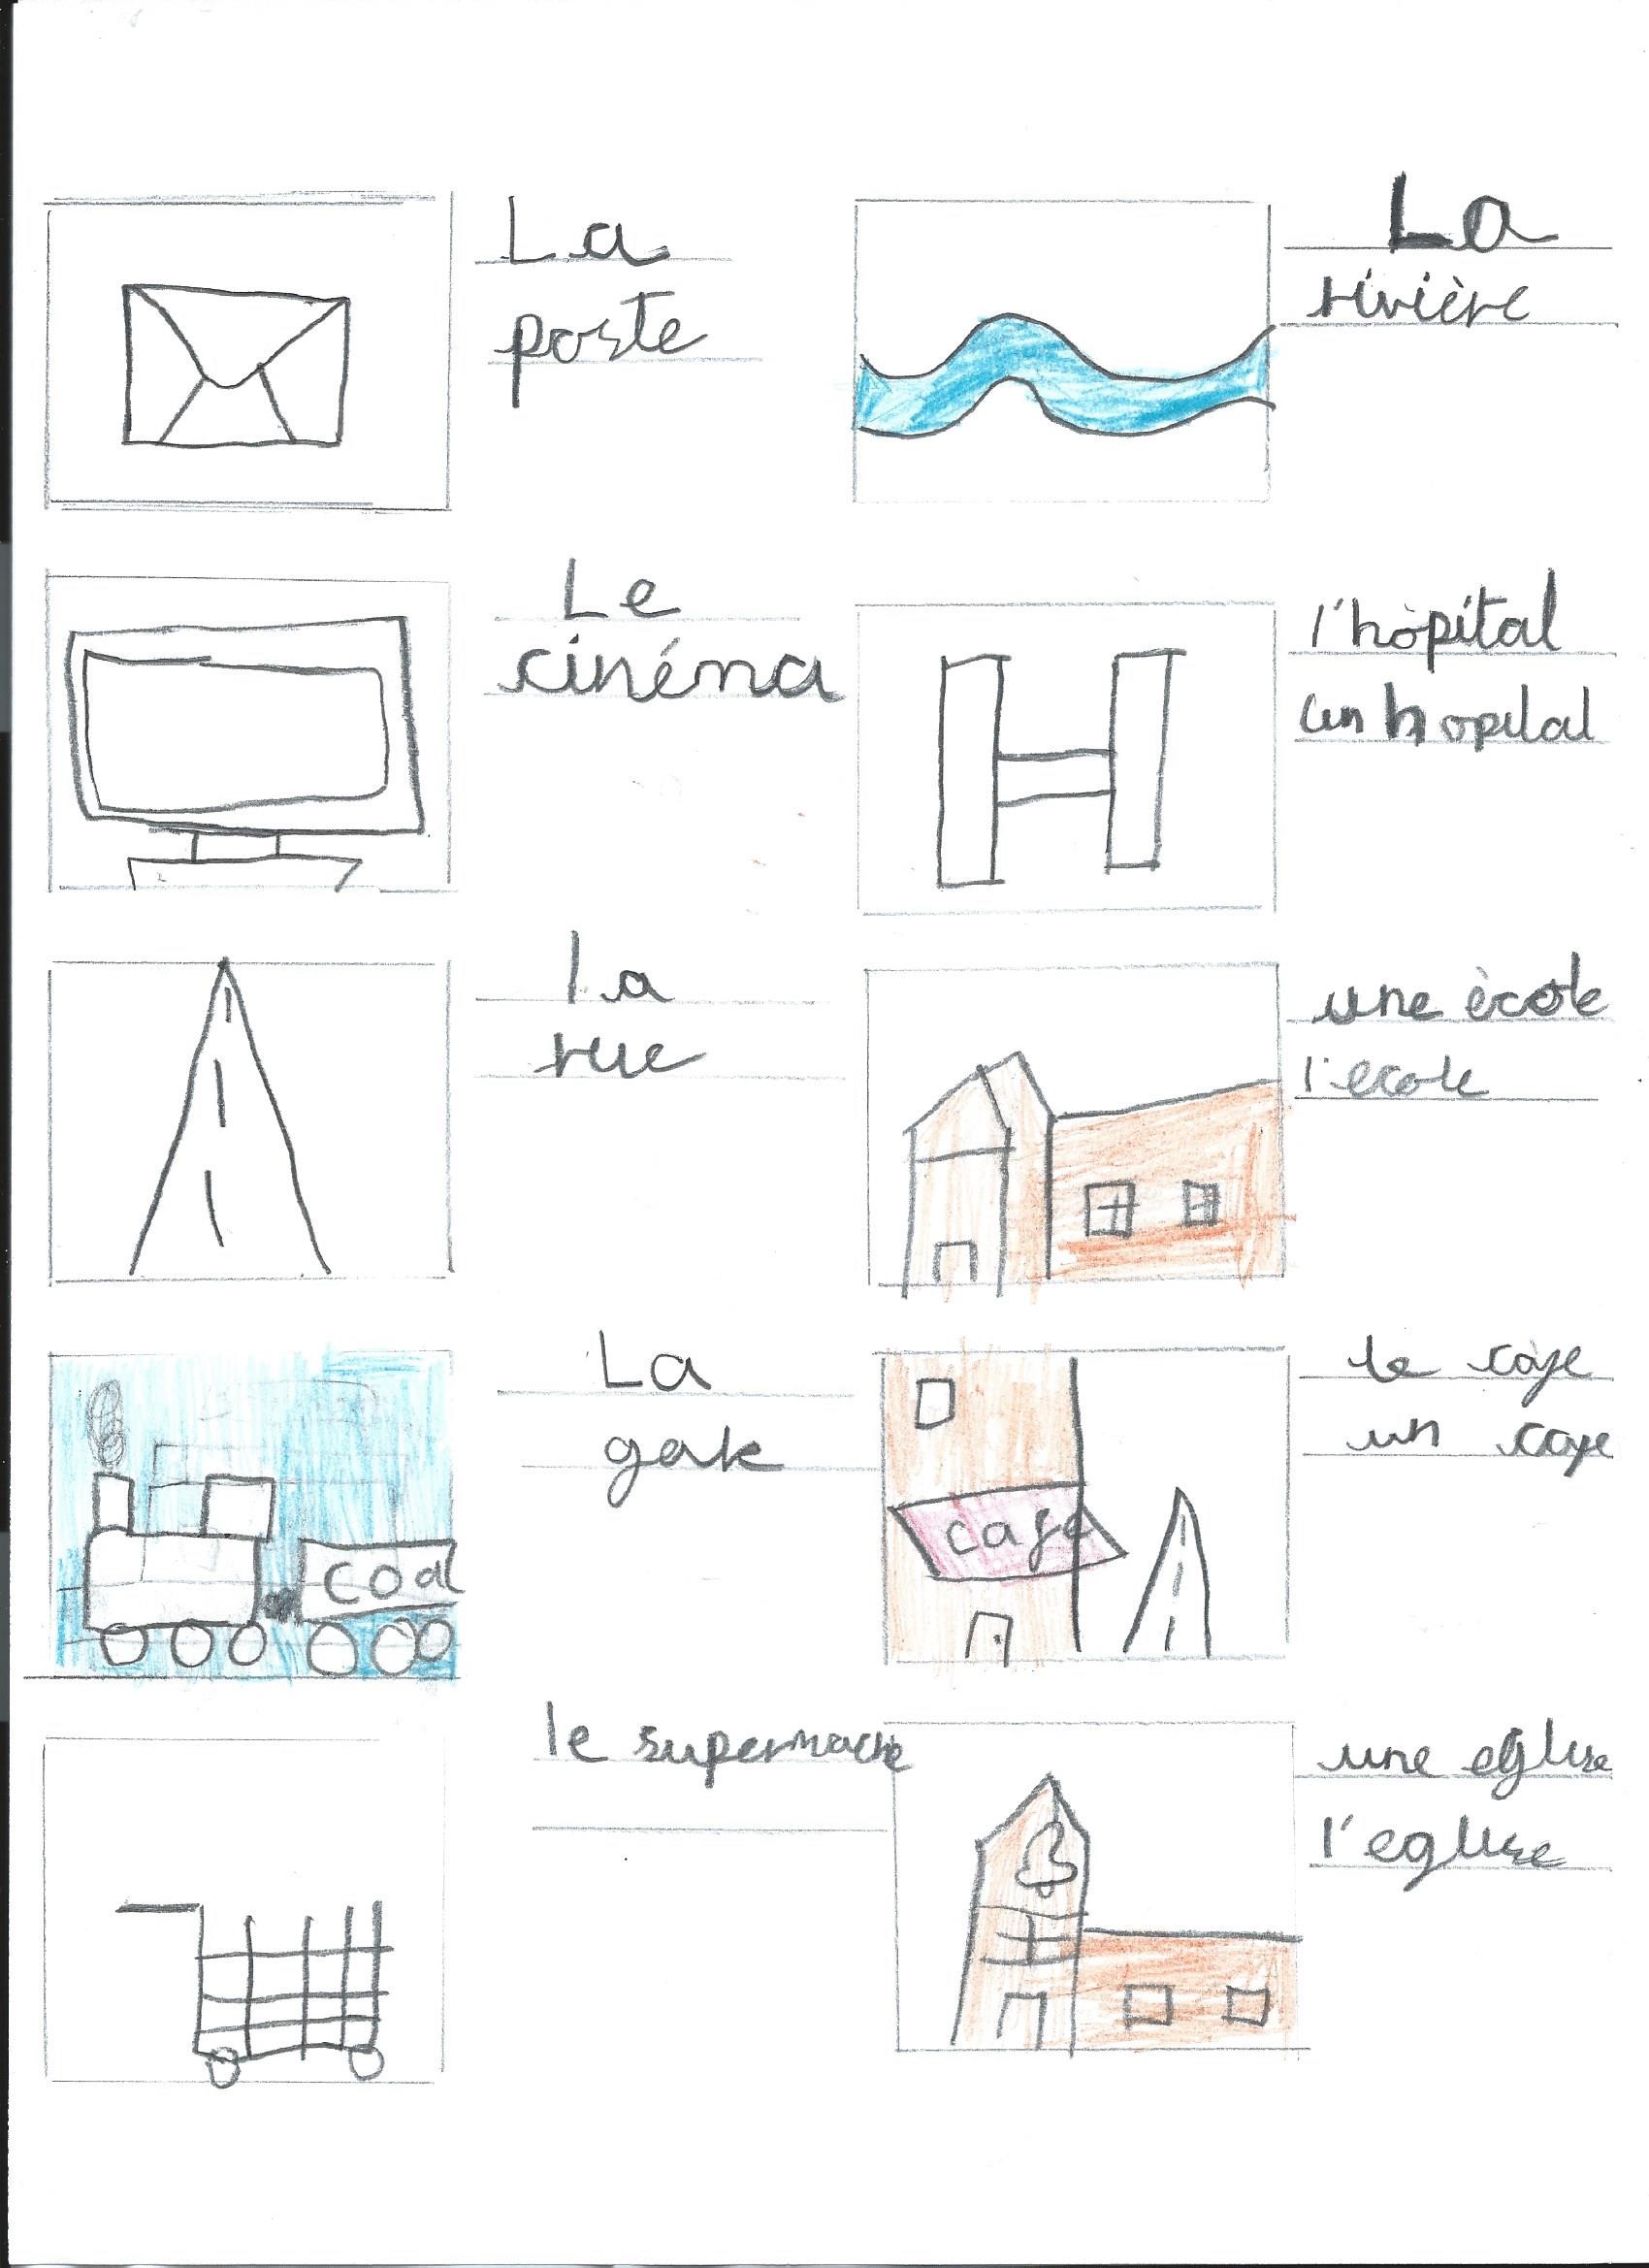 La
poste
La
rivière
Le
cinéma
l'hòpital
un hopital
la
rue
une ècole
l'ecole
La
gare
coal
le càfe
un cafe
cafe
le supermache
une eglise
l'eglise